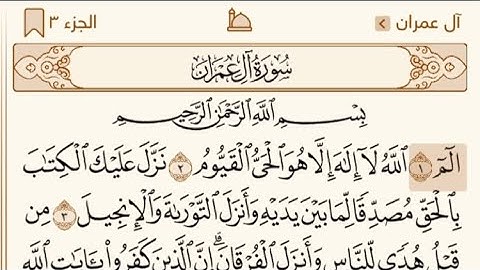 آل عمران الجزء ٣
سُورَةُ آلِ عِمْرَانَ
بِسْمِ اللَّهِ الرَّحْمَٰنِ الرَّحِيمِ
الٓمٓ ١ ٱللَّهُ لَآ إِلَٰهَ إِلَّا هُوَ ٱلْحَىُّ ٱلْقَيُّومُ ٢ نَزَّلَ عَلَيْكَ ٱلْكِتَٰبَ
بِٱلْحَقِّ مُصَدِّقًا لِّمَا بَيْنَ يَدَيْهِ وَأَنزَلَ ٱلتَّوْرَىٰةَ وَٱلْإِنجِيلَ ٣ مِن
قَبْلُ هُدًى لِّلنَّاسِ وَأَنزَلَ ٱلْفُرْقَانَۗ إِنَّ ٱلَّذِينَ كَفَرُوا۟ بِـَٔايَٰتِ ٱللَّهِ